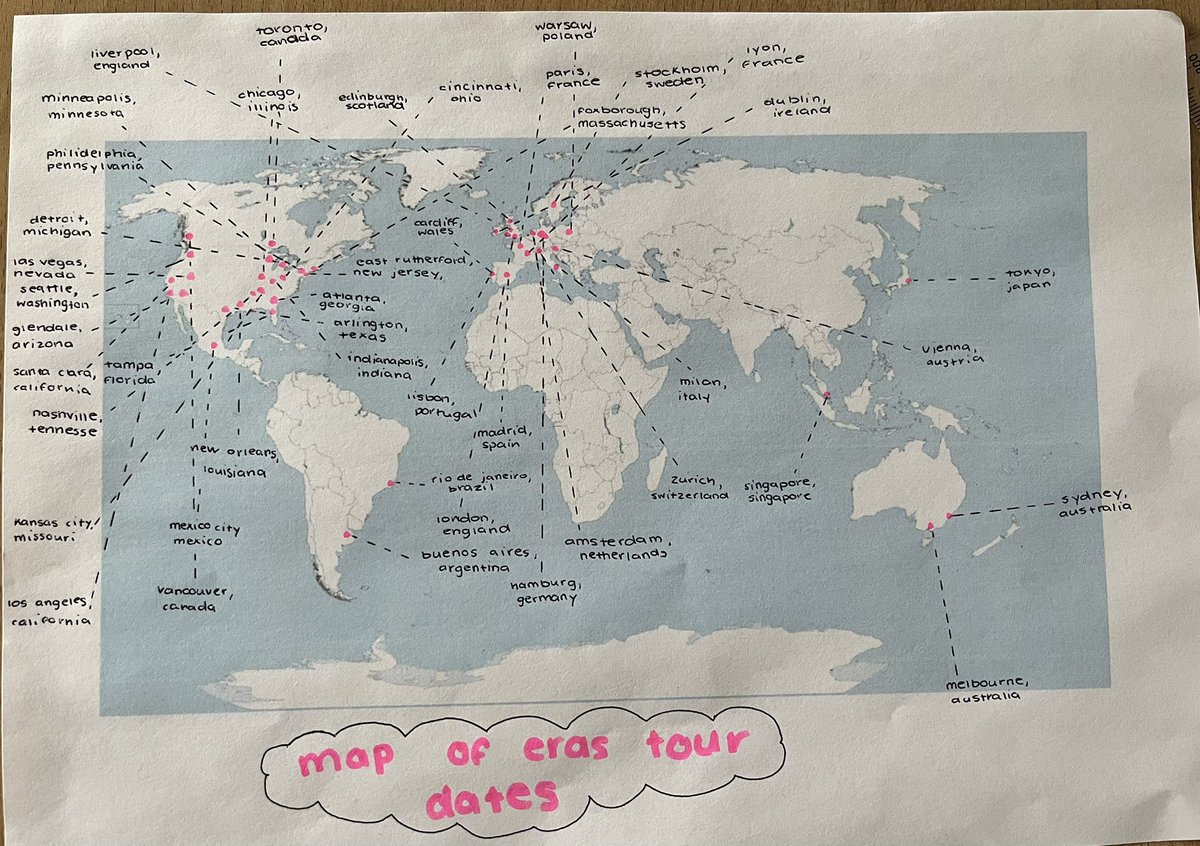 toronto,
canada
warsaw,
poland
liverpool,
england
paris,
france
stockholm,
sweden
lyon,
france
minneapolis,
minnesota
chicago,
illinois
edinburgh,
scotland
cincinnati,
ohio
foxborough,
massachusetts
dublin,
ireland
philidelphia,
pennsylvania
detroit,
michigan
cardiff,
wales
las vegas,
nevada
east rutherford,
new jersey,
seattle,
washington
tokyo,
japan
atlanta,
georgia
glendale,
arizona
arlington,
texas
vienna,
austria
santa clara,
california
tampa
florida
indianapolis,
indiana
milan,
italy
lisbon,
portugal
nashville,
tennesse
madrid,
spain
new orleans,
louisiana
rio de janeiro,
brazil
zurich,
switzerland
singapore,
singapore
sydney,
australia
kansas city,
missouri
mexico city
mexico
london,
england
buenos aires,
argentina
amsterdam,
netherlands
vancouver,
canada
hamburg,
germany
los angeles,
california
melbourne,
australia
map of eras tour
dates